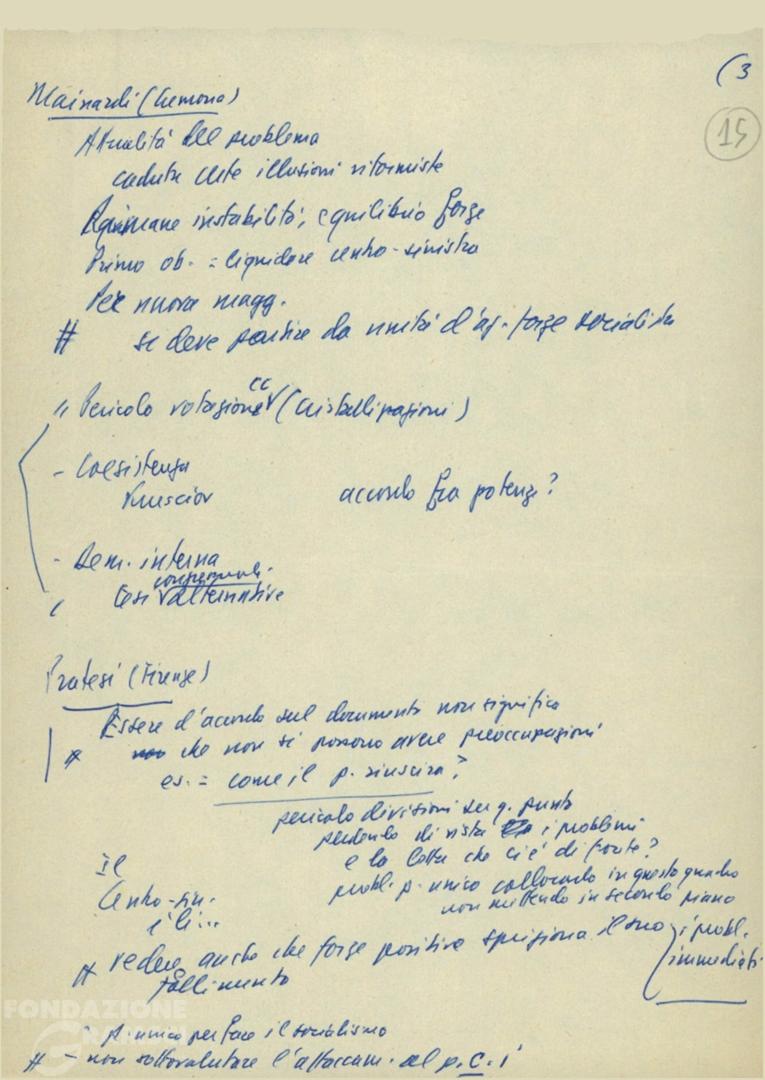 (3
15
Mainardi (Cremona)
Attualità del problema
caduta certe illusioni riformiste
Rimane instabilità, equilibrio forze
Primo ob. = liquidare centro-sinistra
Per nuova magg.
# si deve partire da unità d'az. forze socialiste
" Pericolo votazione CC (cristallizzazioni)
- Coesistenza
Krusciov accordo fra potenze?
- Dem. interna
Tesi alternative
Pratesi (Firenze)
Essere d'accordo sul documento non significa
# che non si possono avere preoccupazioni
es. = come il p. riuscirà?
pericolo divisioni su q. punto
perdendo di vista i problemi
e la lotta che ci è di fronte?
probl. p. unico collocarlo in questo quadro
non mettendo in secondo piano
i probl.
immediati
Il
Centro-sin.
è lì...
# vedere anche che forze positive sprigiona il suo
fallimento
P. unico per fare il socialismo
# - non sottovalutare l'attaccam. al p.C.i
FONDAZIONE
GRAMSCI